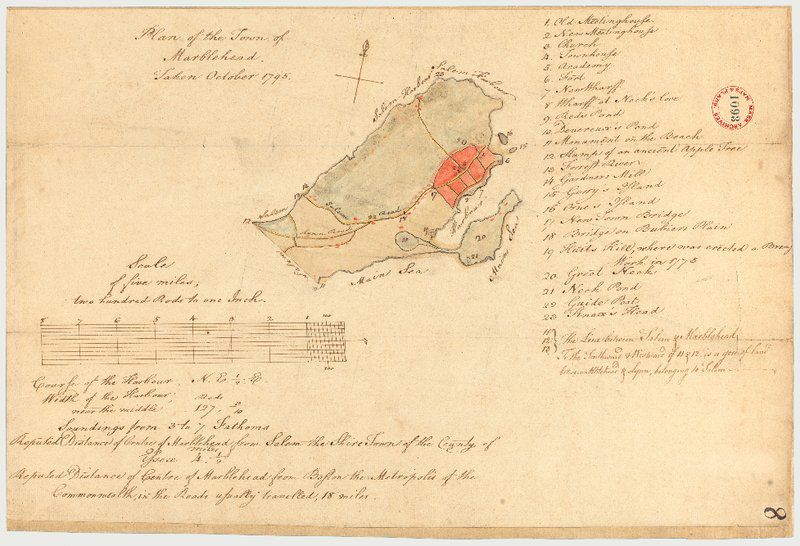 Plan of the Town of
Marblehead.
Taken October 1795.
1 Old Meetinghouse.
2 New Meetinghouse
3 Church
4 Townhouse
5 Academy
6 Fort
7 New Wharff
8 Wharff at Nack's Cove
9 Reds Pond
10 Devereux's Pond
11 Monument on the Beach
12 Stump of an ancient Apple Tree
13 Forrest River
14 Gardners Mill
15 Gerry's Island
16 Orne's Island
17 New Town Bridge
18 Bridge on Bubiers Plain
19 Hutts Hill, where was erected a Breast
Work in 1775
20 Great Neck
21 Neck Pond
22 Guide Post
23 Head
11
12
13
The Line between Salem & Marblehead
To the Southward & Westward of 11 & 12 is a gore of land
between Marblehead & Lynn, belonging to Salem.
MASS ARCHIVES
MAPS & PLANS
1093
Salem Harbour
Salem Harbour
Salem
Salem
Road
Lynn Road
Harbour
Main Sea
Main Sea
Scale
of five miles;
two hundred Rods to one Inch.
8 7 6 5 4 3 2 1
Course of the Harbour, N. E. 1/2 E.
Width of the Harbour, rods
near the middle 127. 5/10
Soundings from 3 to 7 Fathoms
Reputed Distance of Centre of Marblehead from Salem the Shire Town of the County of
Essex miles 4.
Reputed Distance of Centre of Marblehead from Boston the Metropolis of the
Commonwealth, in the Roads usually travelled, 18 miles.
8